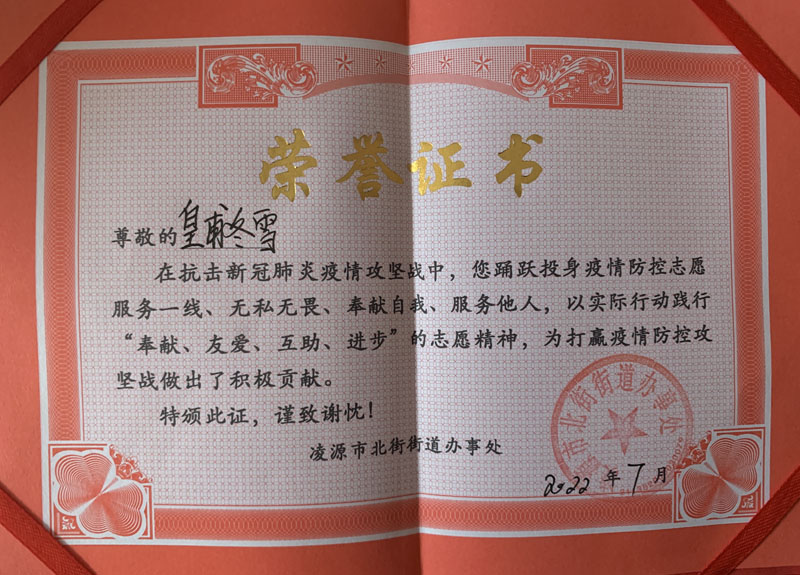 荣誉证书
尊敬的皇甫冬雪
在抗击新冠肺炎疫情攻坚战中，您踊跃投身疫情防控志愿
服务一线、无私无畏、奉献自我、服务他人，以实际行动践行
“奉献、友爱、互助、进步”的志愿精神，为打赢疫情防控攻
坚战做出了积极贡献。
特颁此证，谨致谢忱！
凌源市北街街道办事处
2022年7月
源市北街街道办事处